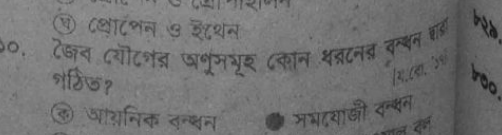 (ঘ) প্রোপেন ও ইথেন
১০. জৈব যৌগের অণুসমূহ কোন ধরনের বন্ধন দ্বারা
গঠিত?
(ক) আয়নিক বন্ধন ● সমযোজী বন্ধন